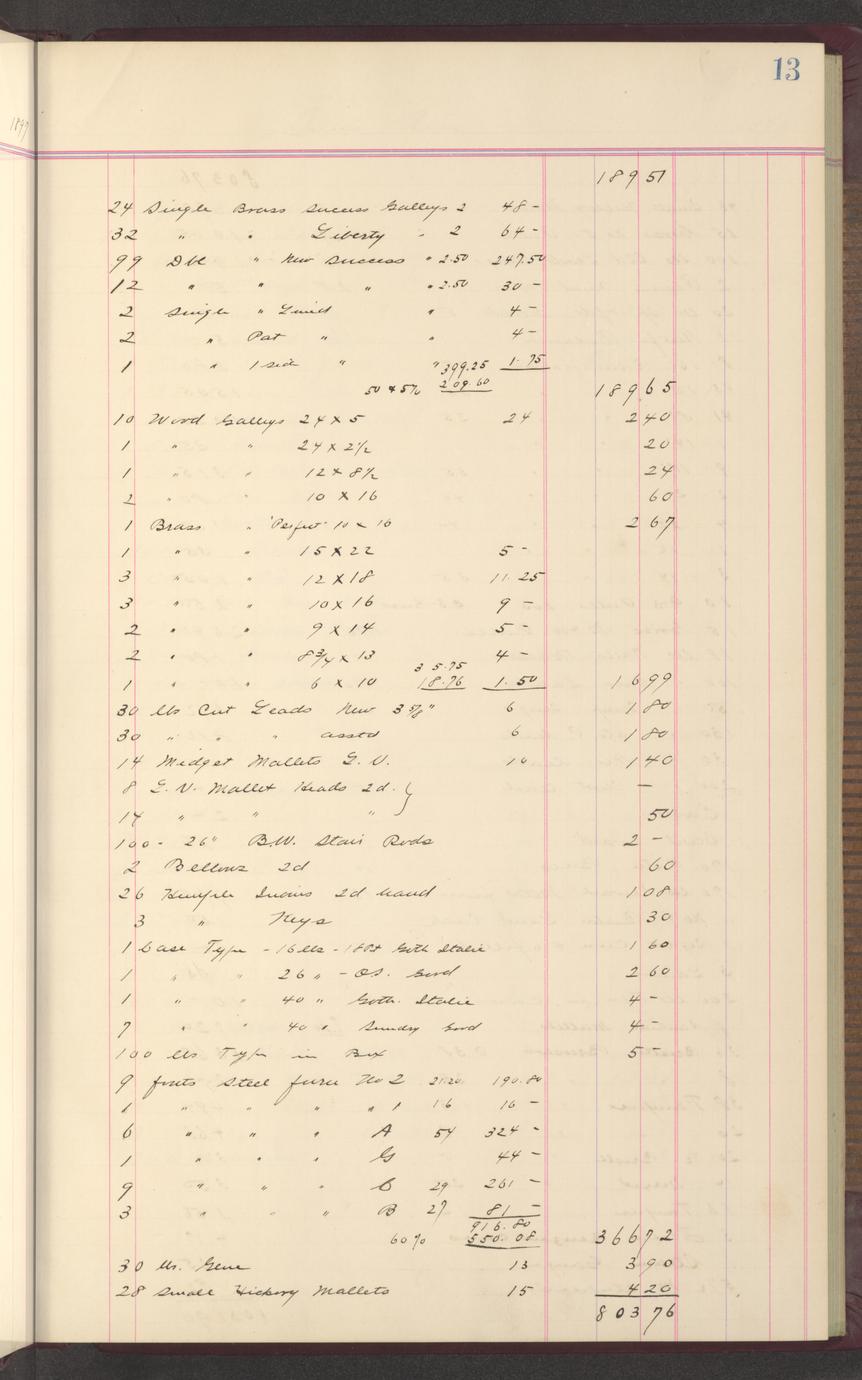 13
1897
189 51
24 Single Brass Success Galleys 2 48 -
32 " " Liberty " 2 64 -
99 Dbl " New Success " 2.50 247.50
12 " " " " 2.50 30 -
2 Single " " 4 -
2 " Pat " " 4 -
1 " 1 side " " 399.25 1.75
50 & 5% 209.60 189 65
10 Wood Galleys 24 x 5 24 2 40
1 " " 24 x 2 1/2 20
1 " " 12 x 8 1/2 24
2 " " 10 x 16 60
1 Brass " "Perfect" 10 x 16 2 67
1 " " 15 x 22 5 -
3 " " 12 x 18 11.25
3 " " 10 x 16 9 -
2 " " 9 x 14 5 -
2 " " 8 3/4 x 13 4 -
35.75
1 " " 6 x 10 18.76 1.50 16 99
30 lbs Cut Leads New 3 5/8" 6 1 80
30 " " " asstd 6 1 80
14 Midget Mallets L.V. 10 1 40
8 L.V. Mallet Heads 2d. } -
14 " " " 50
100 - 26" B.W. Stair Rods 2 -
2 Bellows 2d 60
26 Hempel Quoins 2d hand 1 08
3 " Keys 30
1 Case Type - 16 lbs - 18 Pt Goth Italic 1 60
1 " " 26 " - O.S. Good 2 60
1 " " 40 " Goth. Italic 4 -
7 " " 40 " Sundry Good 4 -
100 lbs Type in Box 5 -
9 fonts Steel furn No 2 21.20 190.80
1 " " " " 1 16 16 -
6 " " " A 54 324 -
1 " " " G 44 -
9 " " " C 29 261 -
3 " " " B 27 81 -
916.80
60% 550.08 366 72
30 lbs. Glue 13 3 90
28 Small Hickory Mallets 15 4 20
803 76